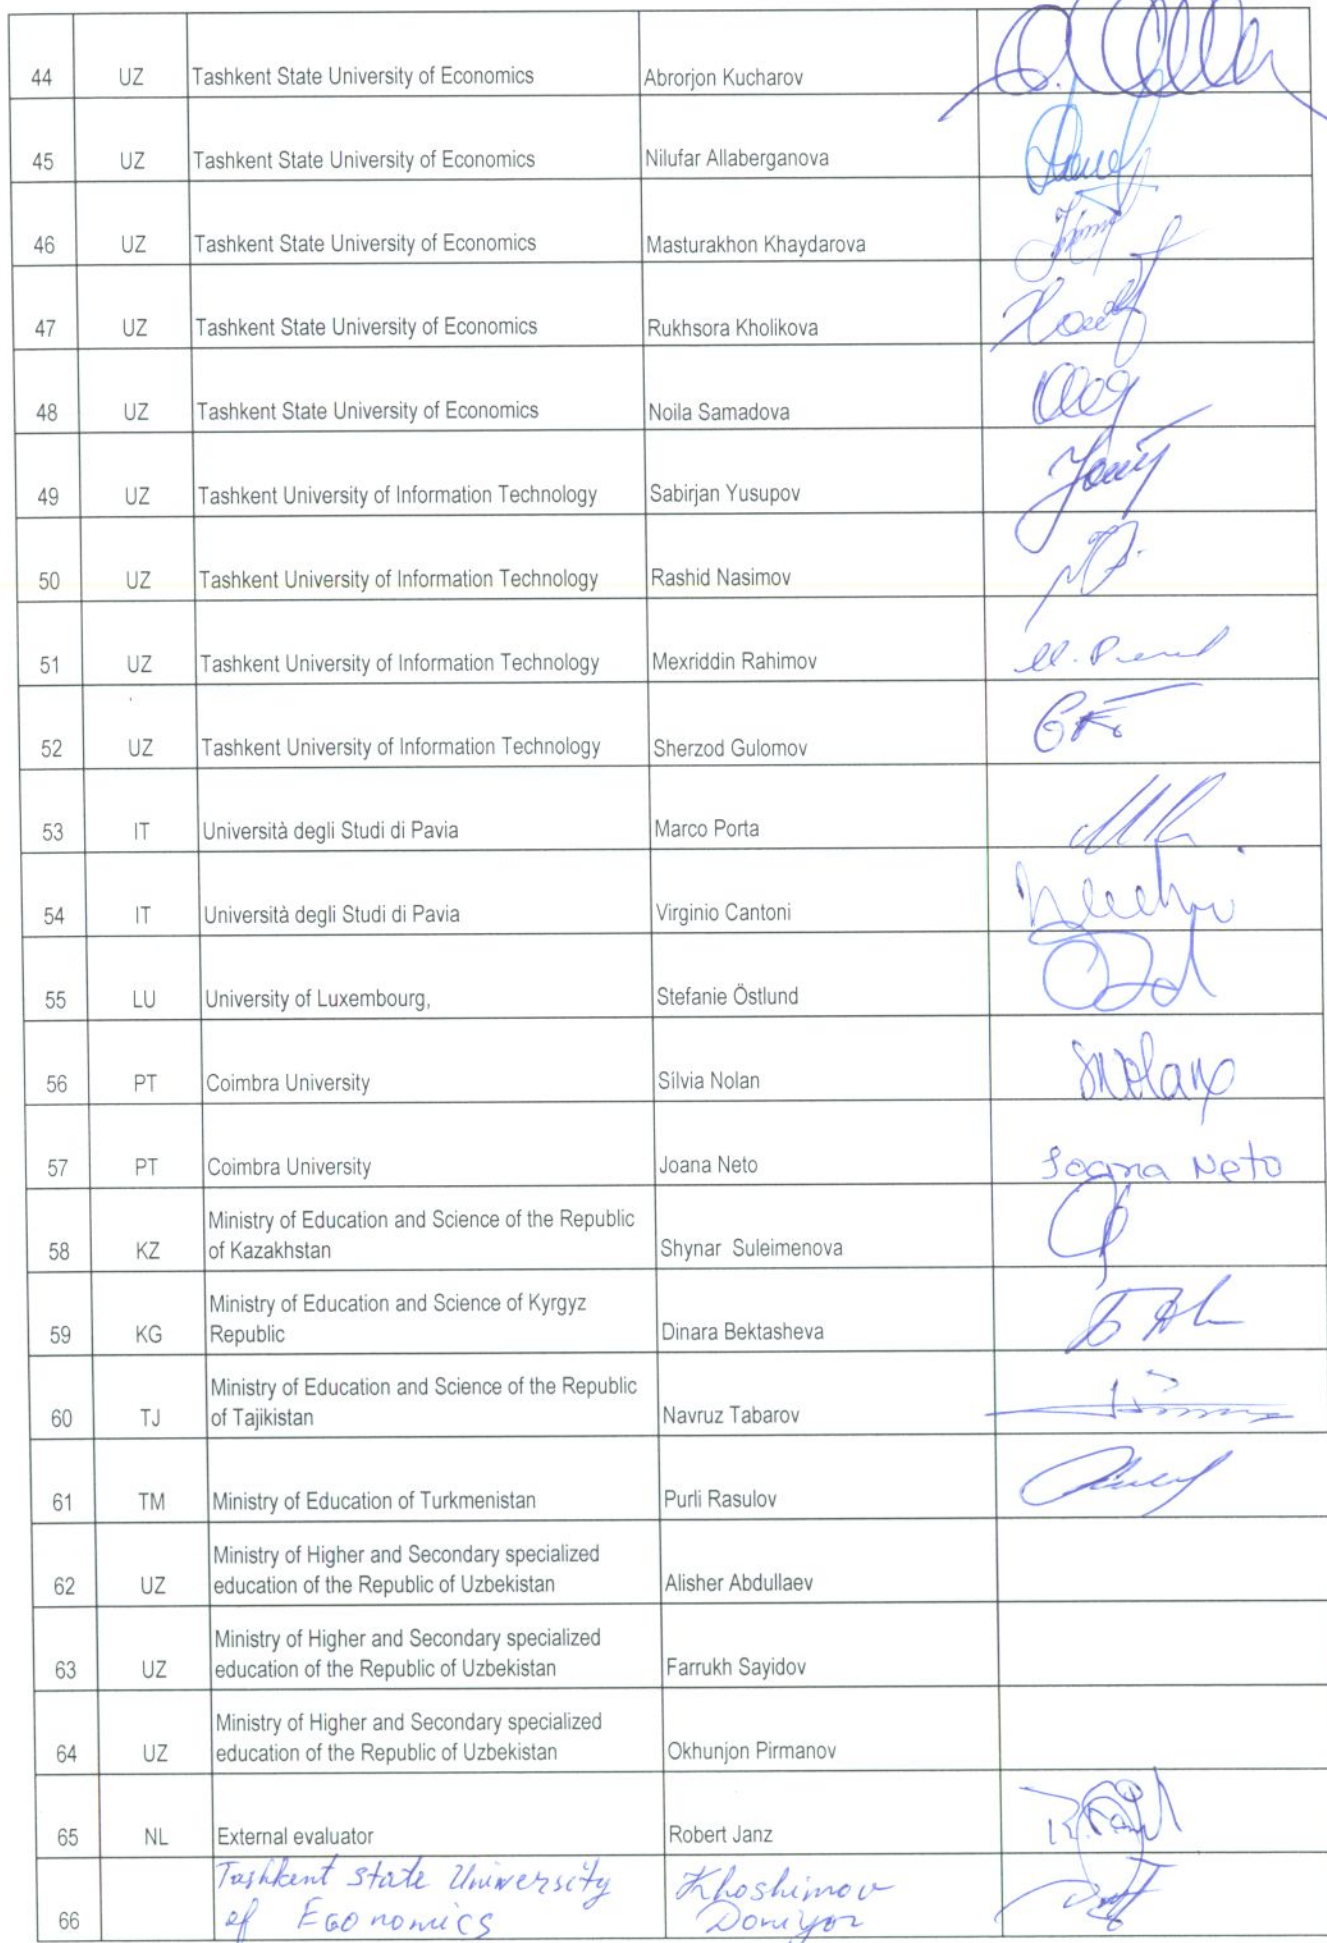 44 UZ Tashkent State University of Economics Abrorjon Kucharov
45 UZ Tashkent State University of Economics Nilufar Allaberganova
46 UZ Tashkent State University of Economics Masturakhon Khaydarova
47 UZ Tashkent State University of Economics Rukhsora Kholikova
48 UZ Tashkent State University of Economics Noila Samadova
49 UZ Tashkent University of Information Technology Sabirjan Yusupov
50 UZ Tashkent University of Information Technology Rashid Nasimov
51 UZ Tashkent University of Information Technology Mexriddin Rahimov
52 UZ Tashkent University of Information Technology Sherzod Gulomov
53 IT Università degli Studi di Pavia Marco Porta
54 IT Università degli Studi di Pavia Virginio Cantoni
55 LU University of Luxembourg, Stefanie Östlund
56 PT Coimbra University Sílvia Nolan SNolan
57 PT Coimbra University Joana Neto Joana Neto
Ministry of Education and Science of the Republic
58 KZ of Kazakhstan Shynar Suleimenova
Ministry of Education and Science of Kyrgyz
59 KG Republic Dinara Bektasheva
Ministry of Education and Science of the Republic
60 TJ of Tajikistan Navruz Tabarov
61 TM Ministry of Education of Turkmenistan Purli Rasulov
Ministry of Higher and Secondary specialized
62 UZ education of the Republic of Uzbekistan Alisher Abdullaev
Ministry of Higher and Secondary specialized
63 UZ education of the Republic of Uzbekistan Farrukh Sayidov
Ministry of Higher and Secondary specialized
64 UZ education of the Republic of Uzbekistan Okhunjon Pirmanov
65 NL External evaluator Robert Janz
Tashkent state University Khoshimov
66 of Economics Doniyor